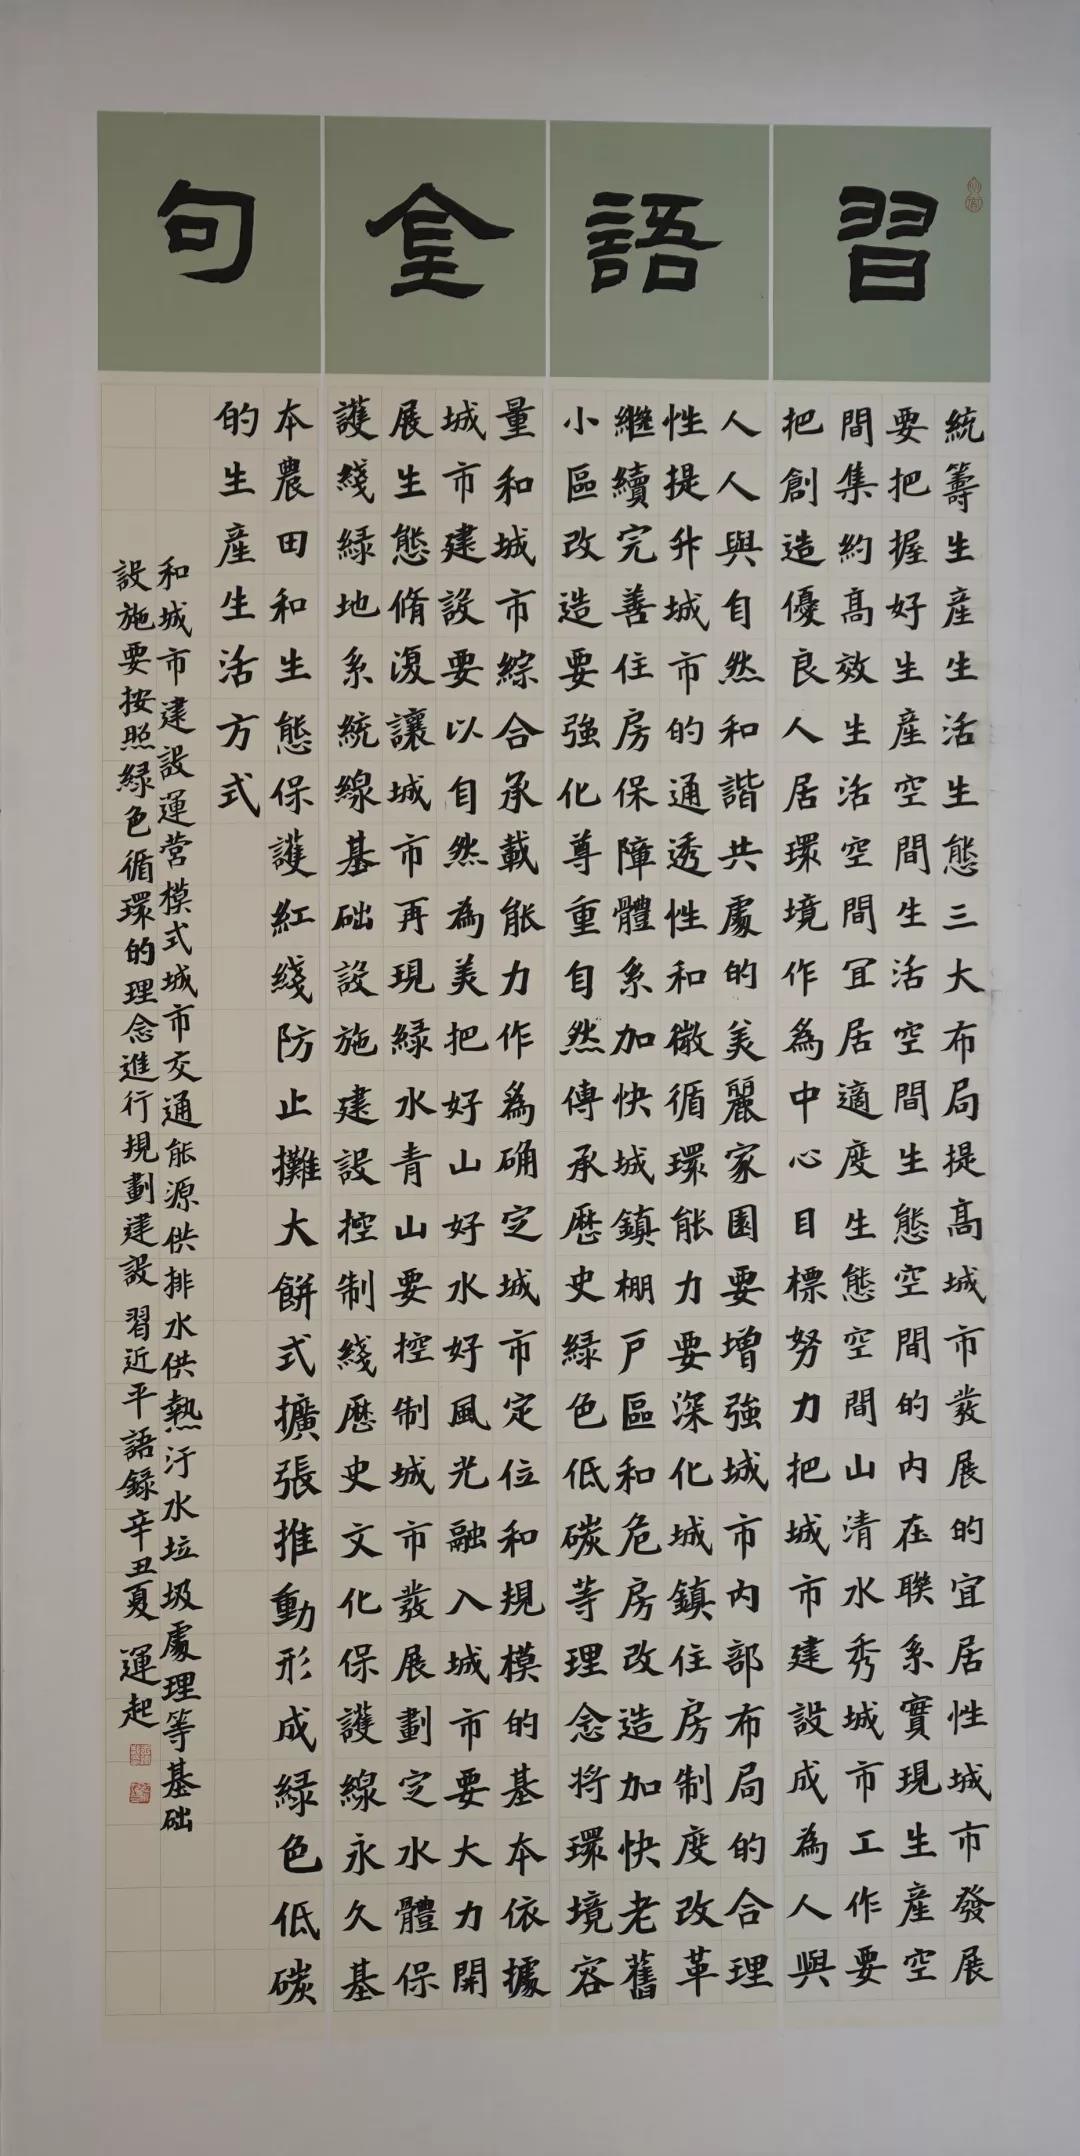 習語金句
統籌生産生活生態三大布局提高城市發展的宜居性城市發展
要把握好生産空間生活空間生態空間的内在聯系實現生産空
間集約高效生活空間宜居適度生態空間山清水秀城市工作要
把創造優良人居環境作爲中心目標努力把城市建設成為人與
人人與自然和諧共處的美麗家園要增強城市内部布局的合理
性提升城市的通透性和微循環能力要深化城鎮住房制度改革
繼續完善住房保障體系加快城鎮棚户區和危房改造加快老舊
小區改造要強化尊重自然傳承歷史緑色低碳等理念将環境容
量和城市綜合承載能力作爲确定城市定位和規模的基本依據
城市建設要以自然為美把好山好水好風光融入城市要大力開
展生態脩復讓城市再現緑水青山要控制城市發展劃定水體保
護綫緑地系統線基础設施建設控制綫歷史文化保護線永久基
本農田和生態保護紅綫防止攤大餅式擴張推動形成緑色低碳
的生産生活方式
和城市建設運营模式城市交通能源供排水供熱汙水垃圾處理等基础
設施要按照緑色循環的理念進行規劃建設 習近平語錄辛丑夏 運起